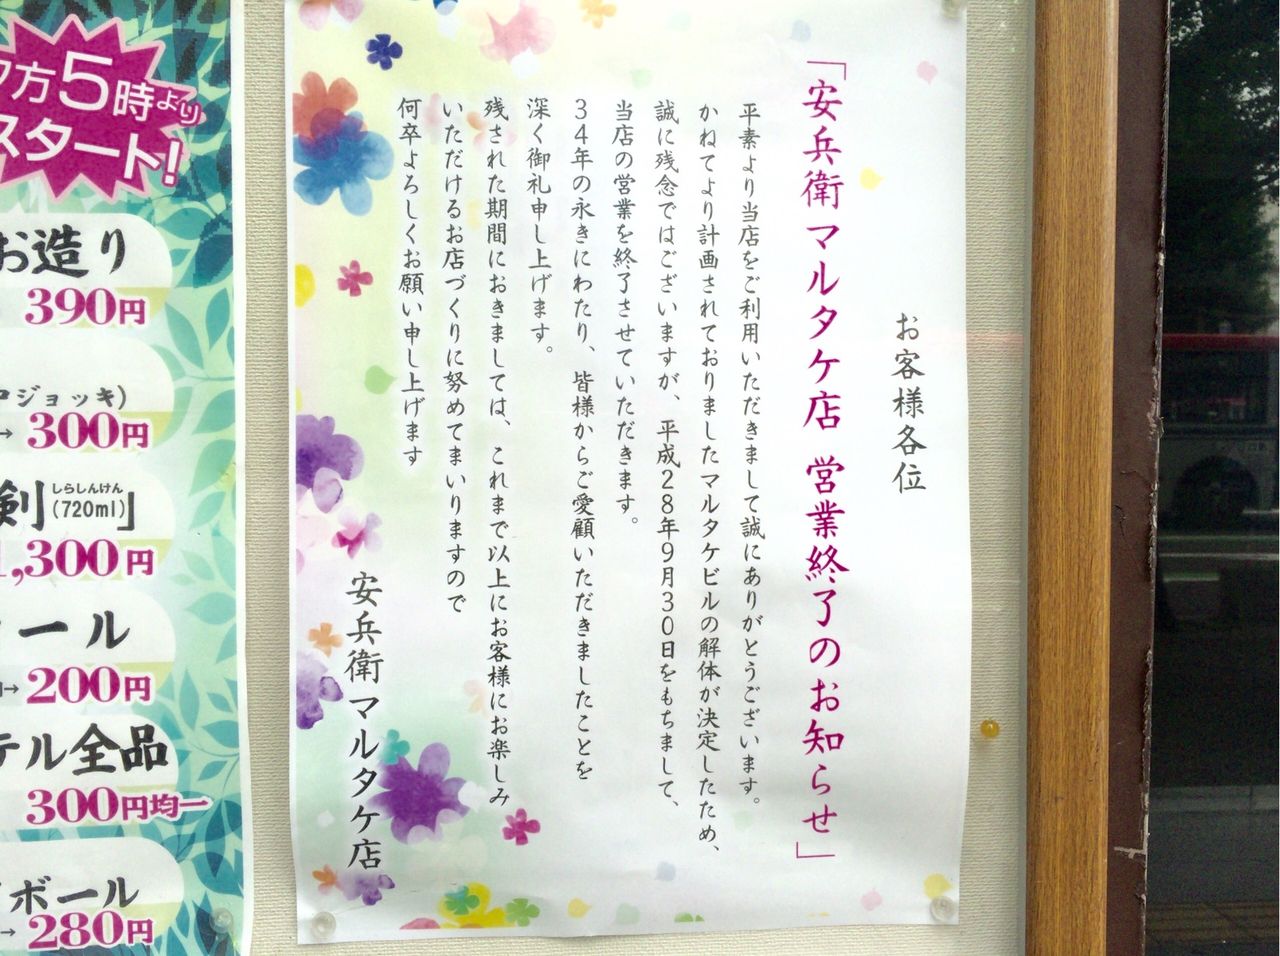 お客様各位
「安兵衛マルタケ店 営業終了のお知らせ」
平素より当店をご利用いただきまして誠にありがとうございます。
かねてより計画されておりましたマルタケビルの解体が決定したため、
誠に残念ではございますが、平成28年9月30日をもちまして、
当店の営業を終了させていただきます。
34年の永きにわたり、皆様からご愛顧いただきましたことを
深く御礼申し上げます。
残された期間におきましては、これまで以上にお客様にお楽しみ
いただけるお店づくりに努めてまいりますので
何卒よろしくお願い申し上げます
安兵衛マルタケ店
夕方5時より
スタート!
お造り
390円
ジョッキ)
→300円
剣(720ml)」
しらしんけん
1,300円
ール
→200円
テル全品
300円均一
ボール
→280円